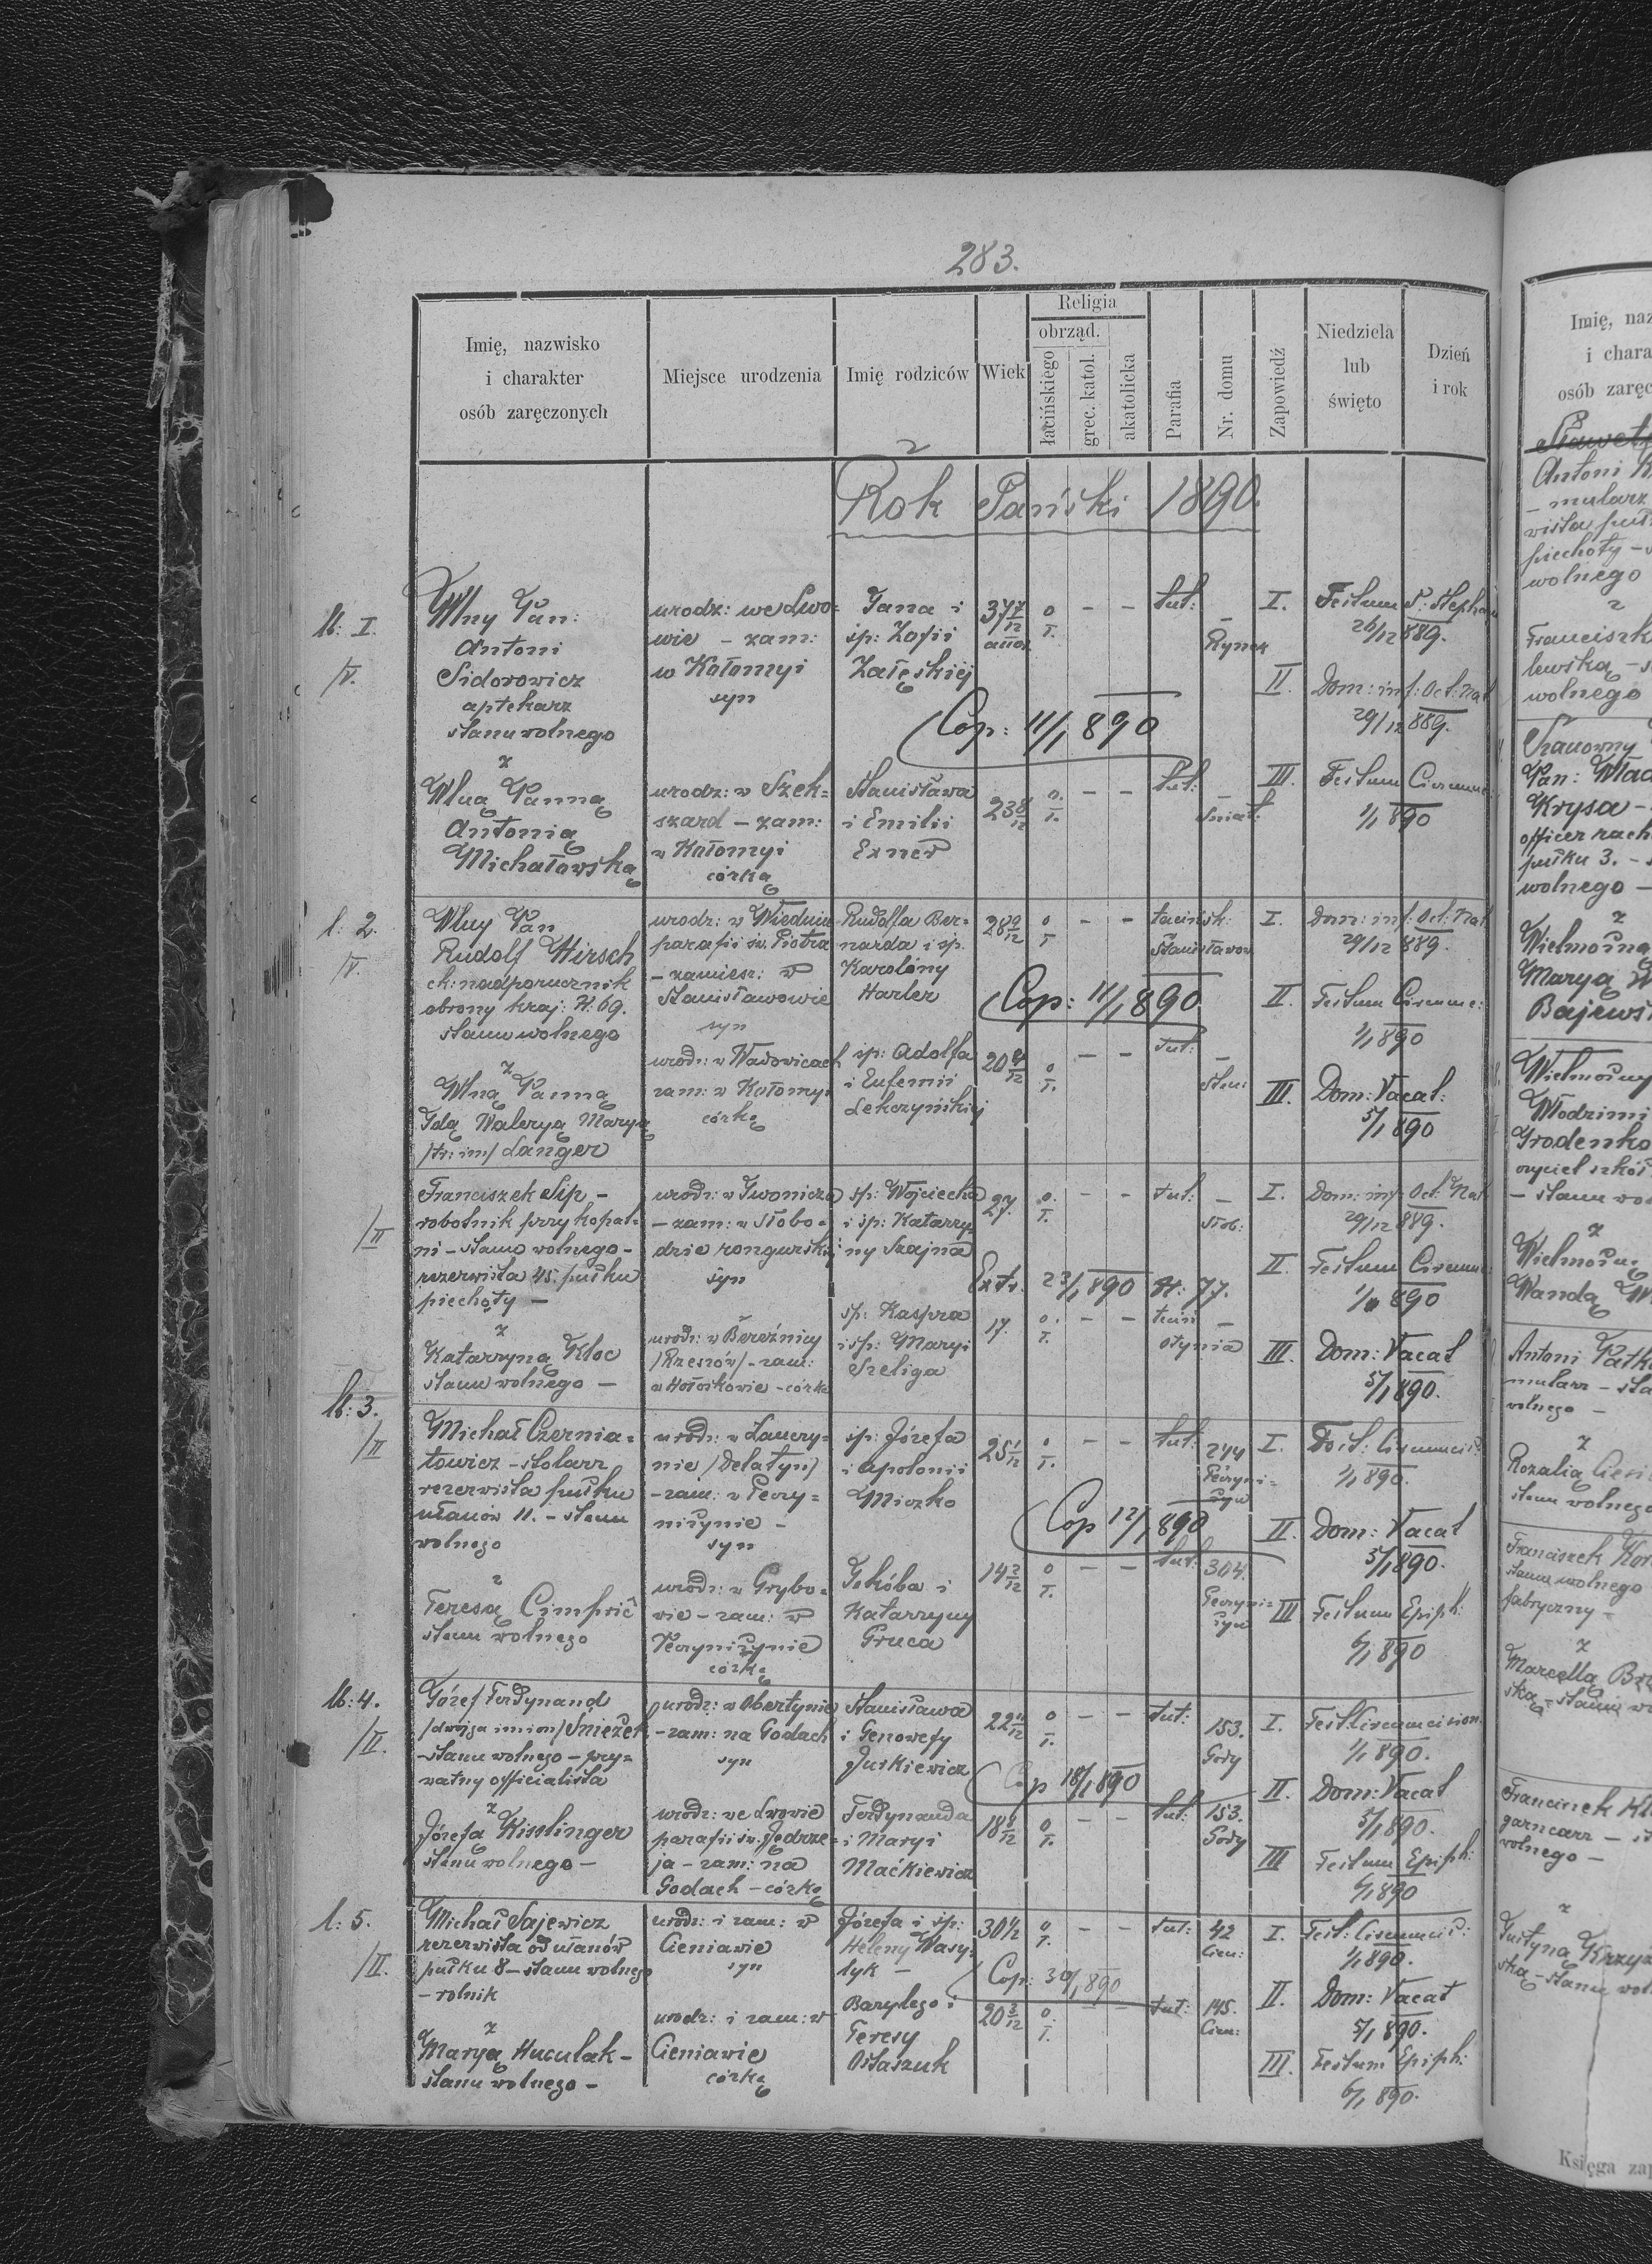 283.
Imię, nazwisko
i charakter
osób zaręczonych
Miejsce urodzenia
Imię rodziców
Wiek
Religia
obrząd.
łacińskiego
grec. katol.
akatolicka
Parafia
Nr. domu
Zapowiedź
Niedziela
lub
święto
Dzień
i rok
Rok Pański 1890.
lb: I.
/V.
Wlny Pan:
Antoni
Sidorowicz
aptekarz
stanu wolnego
z
Wlną Panną
Antonią
Michałowską
urodz: we Lwo=
wie – zam:
w Kołomyi
syn
urodz: w Szek=
szard – zam:
w Kołomyi
córką
Jana i
sp: Zofii
Załęskiej
Stanisława
i Emilii
Exner
37 7/12
o
ł.
– –
tut:
–
Rynek
Cop: 11/1 890
23 8/12
o.
ł.
– –
tut:
–
Śniat:
I. Festum S: Steph
26/12 889.
II. Dom: inf: Oct: Nat
29/12 889.
III. Festum Circumc
1/1 890
l: 2.
/V.
Wlny Pan
Rudolf Hirsch
ck: nadporucznik
obrony kraj: N. 69.
stanu wolnego
z
Wlną Panną
Idą Waleryą Maryą
/tr: im/ Langer
urodz: w Wiedniu
parafii św. Piotra
– zamiesz: w
Stanisławowie
syn
urodz: w Wadowicach
zam: w Kołomyi
córką
Rudolfa Ber=
narda i sp.
Karoliny
Harler
sp: Adolfa
i Eufemii
Lekczyńskiej
28 9/12
o
ł
– –
łacińsk:
Stanisławow
Cop: 11/1 890
20 8/12
o
ł.
– –
tut:
–
I. Dom: inf: Oct: Nat
29/12 889.
II. Festum Circumc:
1/1 890
III. Dom: Vacat:
5/1 890
/II
Franciszek Sip –
robotnik przy kopal=
ni – stanu wolnego –
rezerwista 45. pułku
piechoty –
z
Katarzyną Kloc
stanu wolnego –
urodz: w Iwoniczu
– zam: w Słobo=
dzie rungurskiej
syn
urodz: w Bereźnicy
/Rzeszów/ – zam:
w Hołoskowie – córką
sp: Wojciecha
i sp: Katarzy=
ny Szajna
sp: Kaspra
i sp: Maryi
Szeliga
27.
o.
ł.
– –
tut:
–
Słob:
Extr. 23/1 890 N: 77.
17.
o.
ł.
– –
–
Otynia
I. Dom: inf: Oct: Nat
29/12 889.
II. Festum Circumc
1/1 890
III. Dom: Vacat
5/1 890.
lb: 3.
/II
Michał Czernia=
towicz – stolarz
rezerwista pułku
ułanów 11. – stanu
wolnego
z
Teresą Cimprič
stanu wolnego
urodz: w Łanczy=
nie /Delatyn/
– zam: w Peczy=
niżynie –
syn
urodz: w Grybo=
wie – zam: w
Peczyniżynie
córką
sp: Józefa
i Apolonii
Miczko
Jakóba i
Katarzyny
Gruca
25 1/12
o
ł.
– –
tut:
244
Peczyni=
żyn
Cop 12/1 890
14 2/12
o
ł.
– –
tut:
304.
Peczyni=
żyn
I. Fest: Circumcis:
1/1 890.
II. Dom: Vacat
5/1 890.
III Festum Epiph:
6/1 890
lb: 4.
/II.
Józef Ferdynand
/dwojga imion/ Śnieżek
– stanu wolnego – pry=
watny officialista
z
Józefą Kisslinger
stanu wolnego –
urodz: w Obertynie
– zam: na Godach
syn
urodz: we Lwowie
parafii św. Jędrze=
ja – zam: na
Godach – córką
Stanisława
i Genowefy
Jurkiewicz
Ferdynanda
i Maryi
Maćkiewicz
22 11/12
o
ł.
– –
tut:
153.
Gody
Cop 18/1 890
18 8/12
o
ł.
– –
tut:
153.
Gody
I. Fest. Circumcision.
1/1 890.
II. Dom: Vacat
5/1 890.
III Festum Epiph:
6/1 890
l: 5.
/II.
Michał Sajewicz
rezerwista od ułanów
pułku 8 – stanu wolnego
– rolnik
z
Maryą Huculak –
stanu wolnego –
urodz: i zam: w
Cieniawie
syn
urodz: i zam: w
Cieniawie
córką
Józefa i sp:
Heleny Wasy=
lyk –
Barylego i
Teresy
Ostaszuk
30 1/2
o
ł.
– –
tut:
42
Cien:
Cop: 30/1 890
20 3/12
o.
ł.
– –
tut:
145.
Cien:
I. Fest: Circumcis:
1/1 890.
II. Dom: Vacat
5/1 890.
III. Festum Epiph:
6/1 890.
Imię, naz
i chara
osób zaręc
Antoni
– mularz
wista puł
piechoty –
wolnego
z
Franciszk
lewską – s
wolnego
Szanowny
Pan: Wład
Krysa –
officer rach
pułku 3. –
wolnego –
z
Wielmożną
Maryą
Bajewsk
Wielmożny
Włodzimi
Grodenko
– stanu wol
z
Wielmożną
Wandą
Antoni Patk
mularz – sta
wolnego –
z
Rozalią
stanu wolnego
Franciszek
stanu wolnego
fabryczny –
z
Marcellą
ską – stanu wo
Franciszek
garncarz –
wolnego –
z
Justyną Krzyż
ską – stanu wol
Księga zap